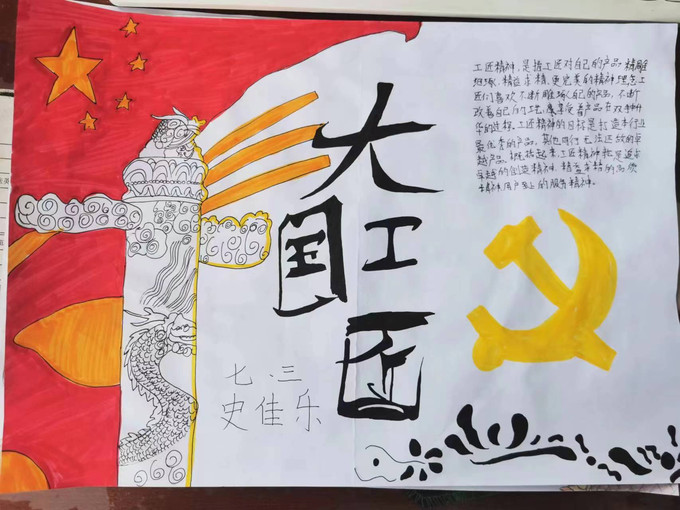 大国工匠
七.三
史佳乐
工匠精神,是指工匠对自己的产品精雕
细琢,精益求精、更完美的精神理念。工
匠们喜欢不断雕琢自己的产品,不断
改善自己的工艺,享受着产品在双手中升
华的过程。工匠精神的目标是打造本行业
最优秀的产品,其他同行无法匹敌的卓
越产品。概括起来,工匠精神就是追求
卓越的创造精神、精益求精的品质
精神用户至上的服务精神。